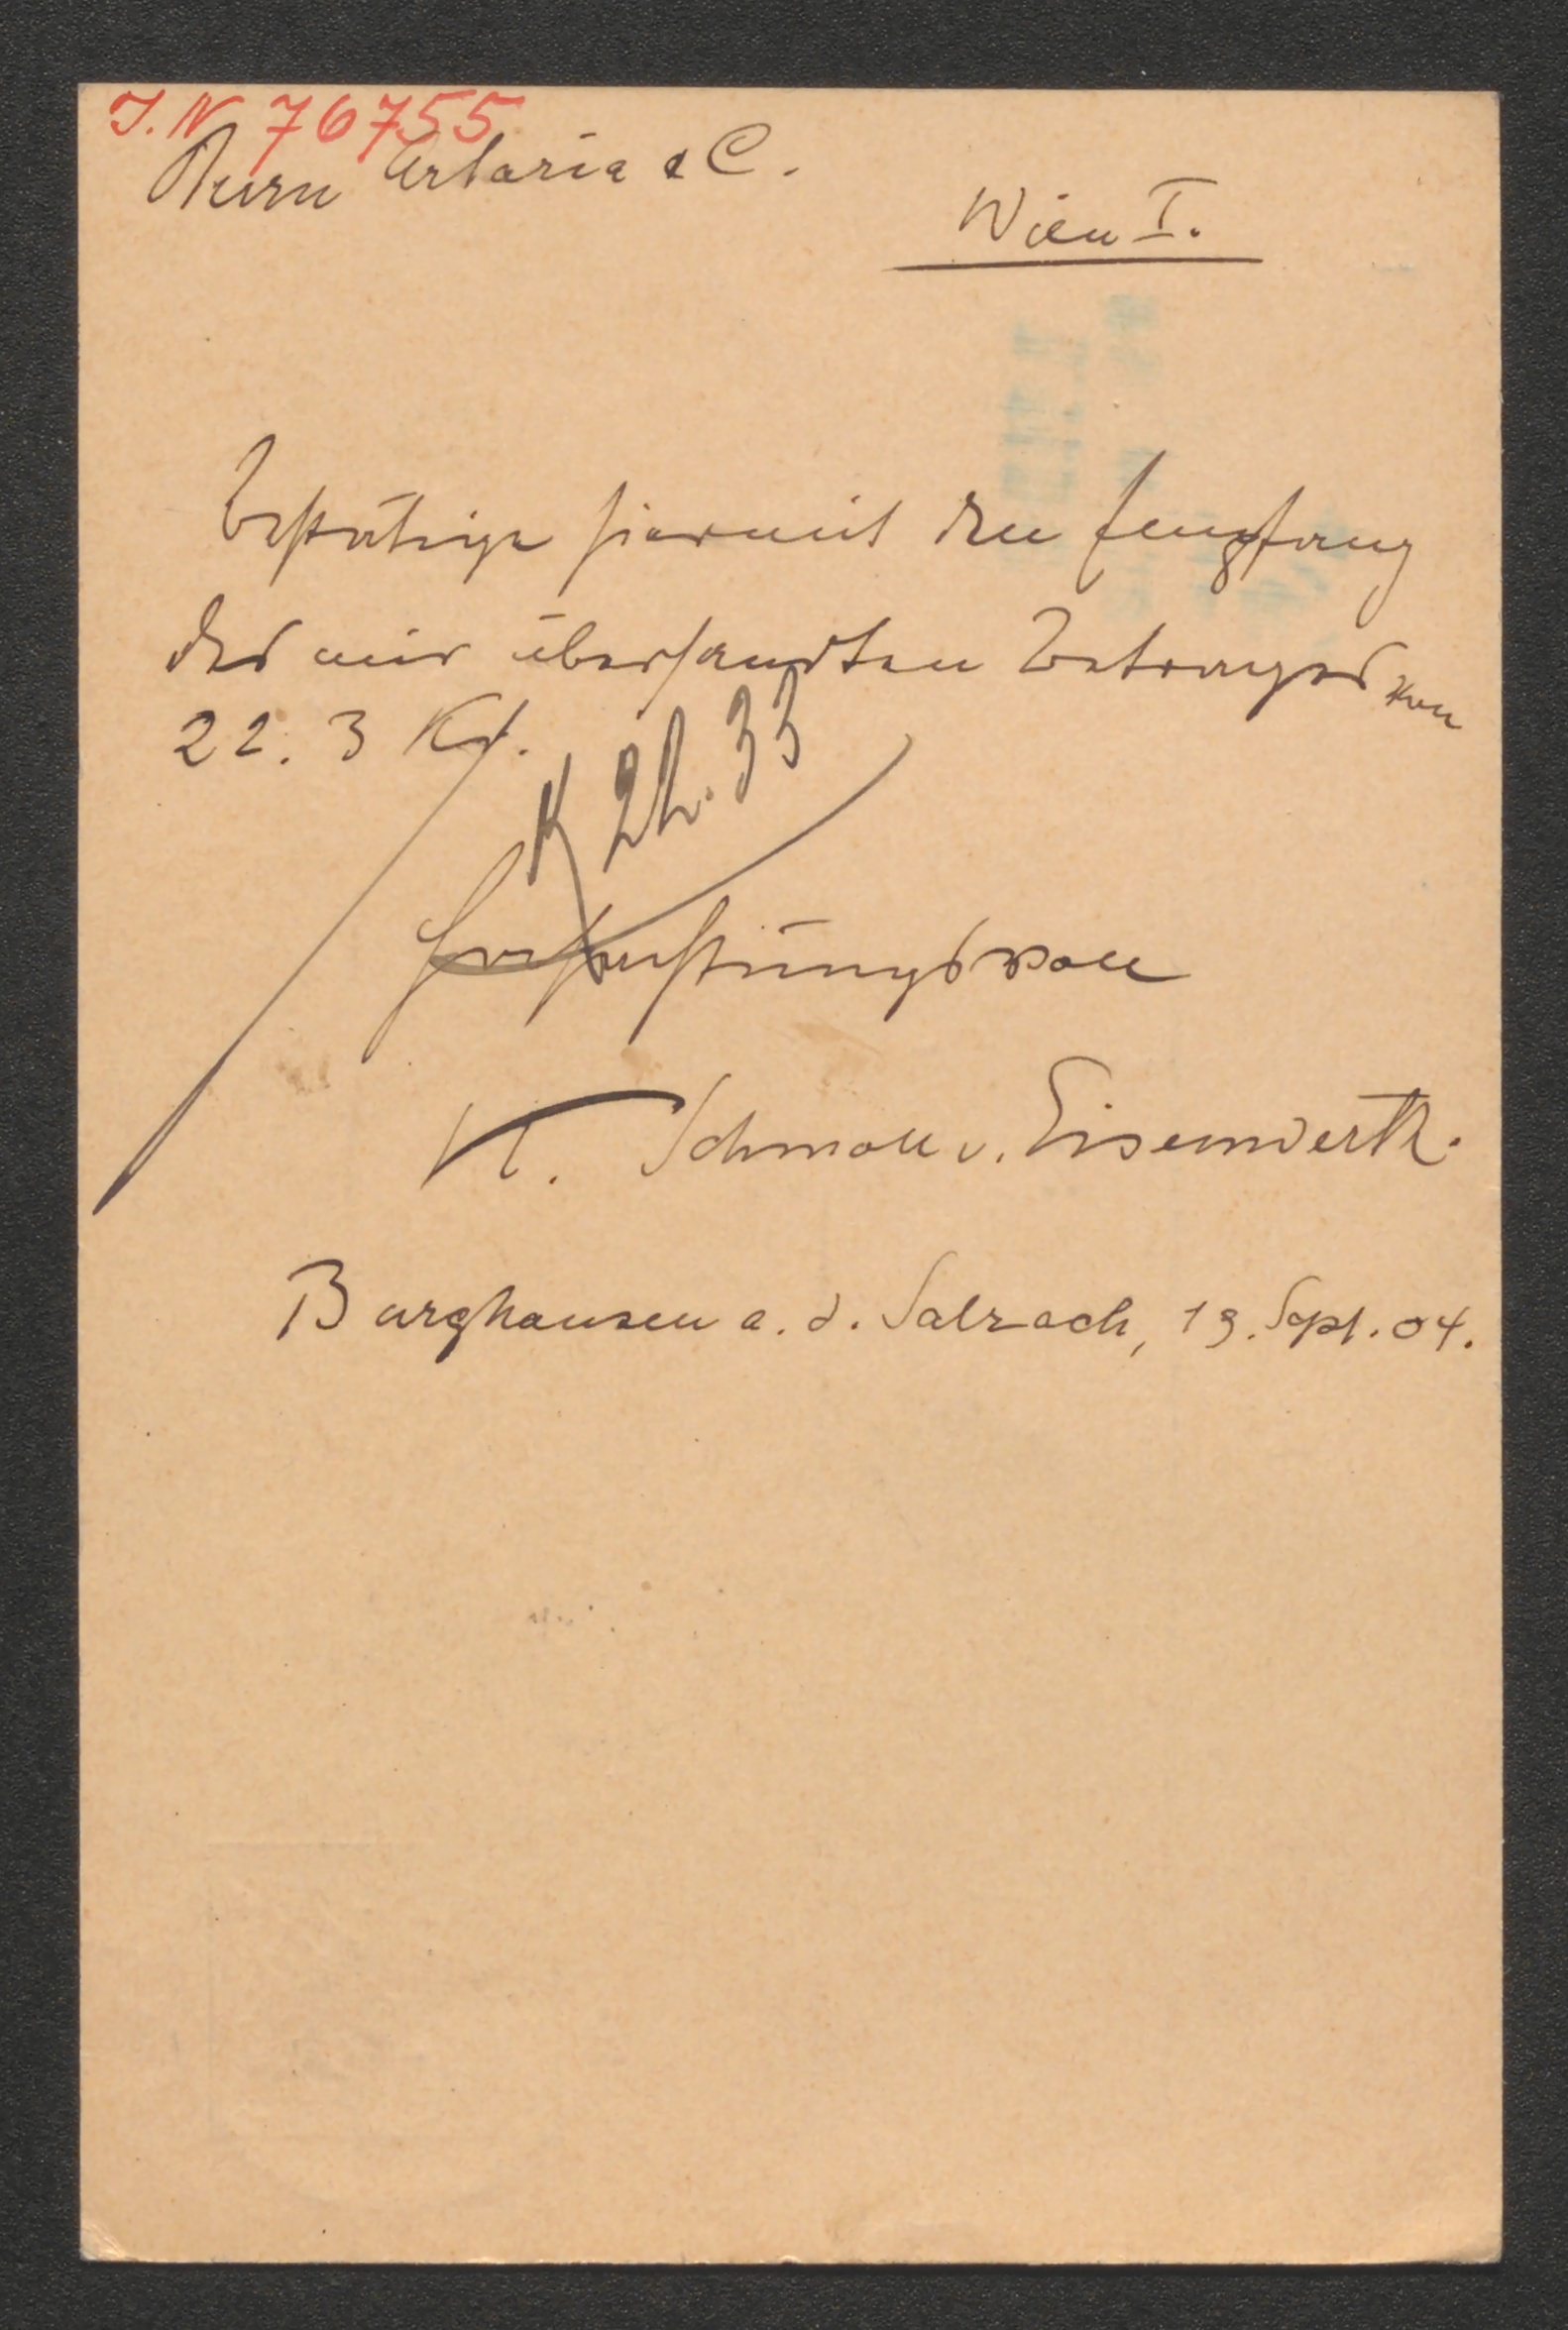 I. N 76755
Herrn Artaria & C.
Wien I.
Bestätige hiermit den Empfang
des mir übersandten Betrages von
22. 3 Kr.
K 22. 33
Hochachtungsvoll
K. Schmoll v. Eisenwerth.
Burghausen a. d. Salzach, 19. Sept. 04.